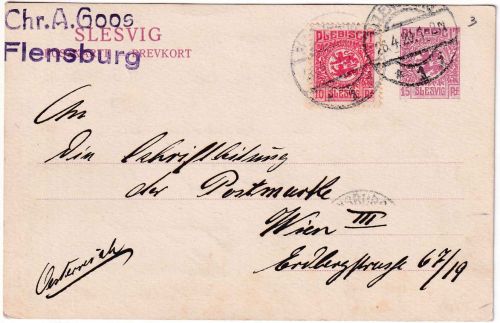 Chr.A.Goos
Flensburg
SLESVIG
POSTKARTE BREVKORT
PLEBISCIT
10 SLESVIG PF.
15 SLESVIG PF.
3
An
Die Schriftleitung
der Postmarke
Wien III
Erdbergstrasse 67/19
Oesterreich